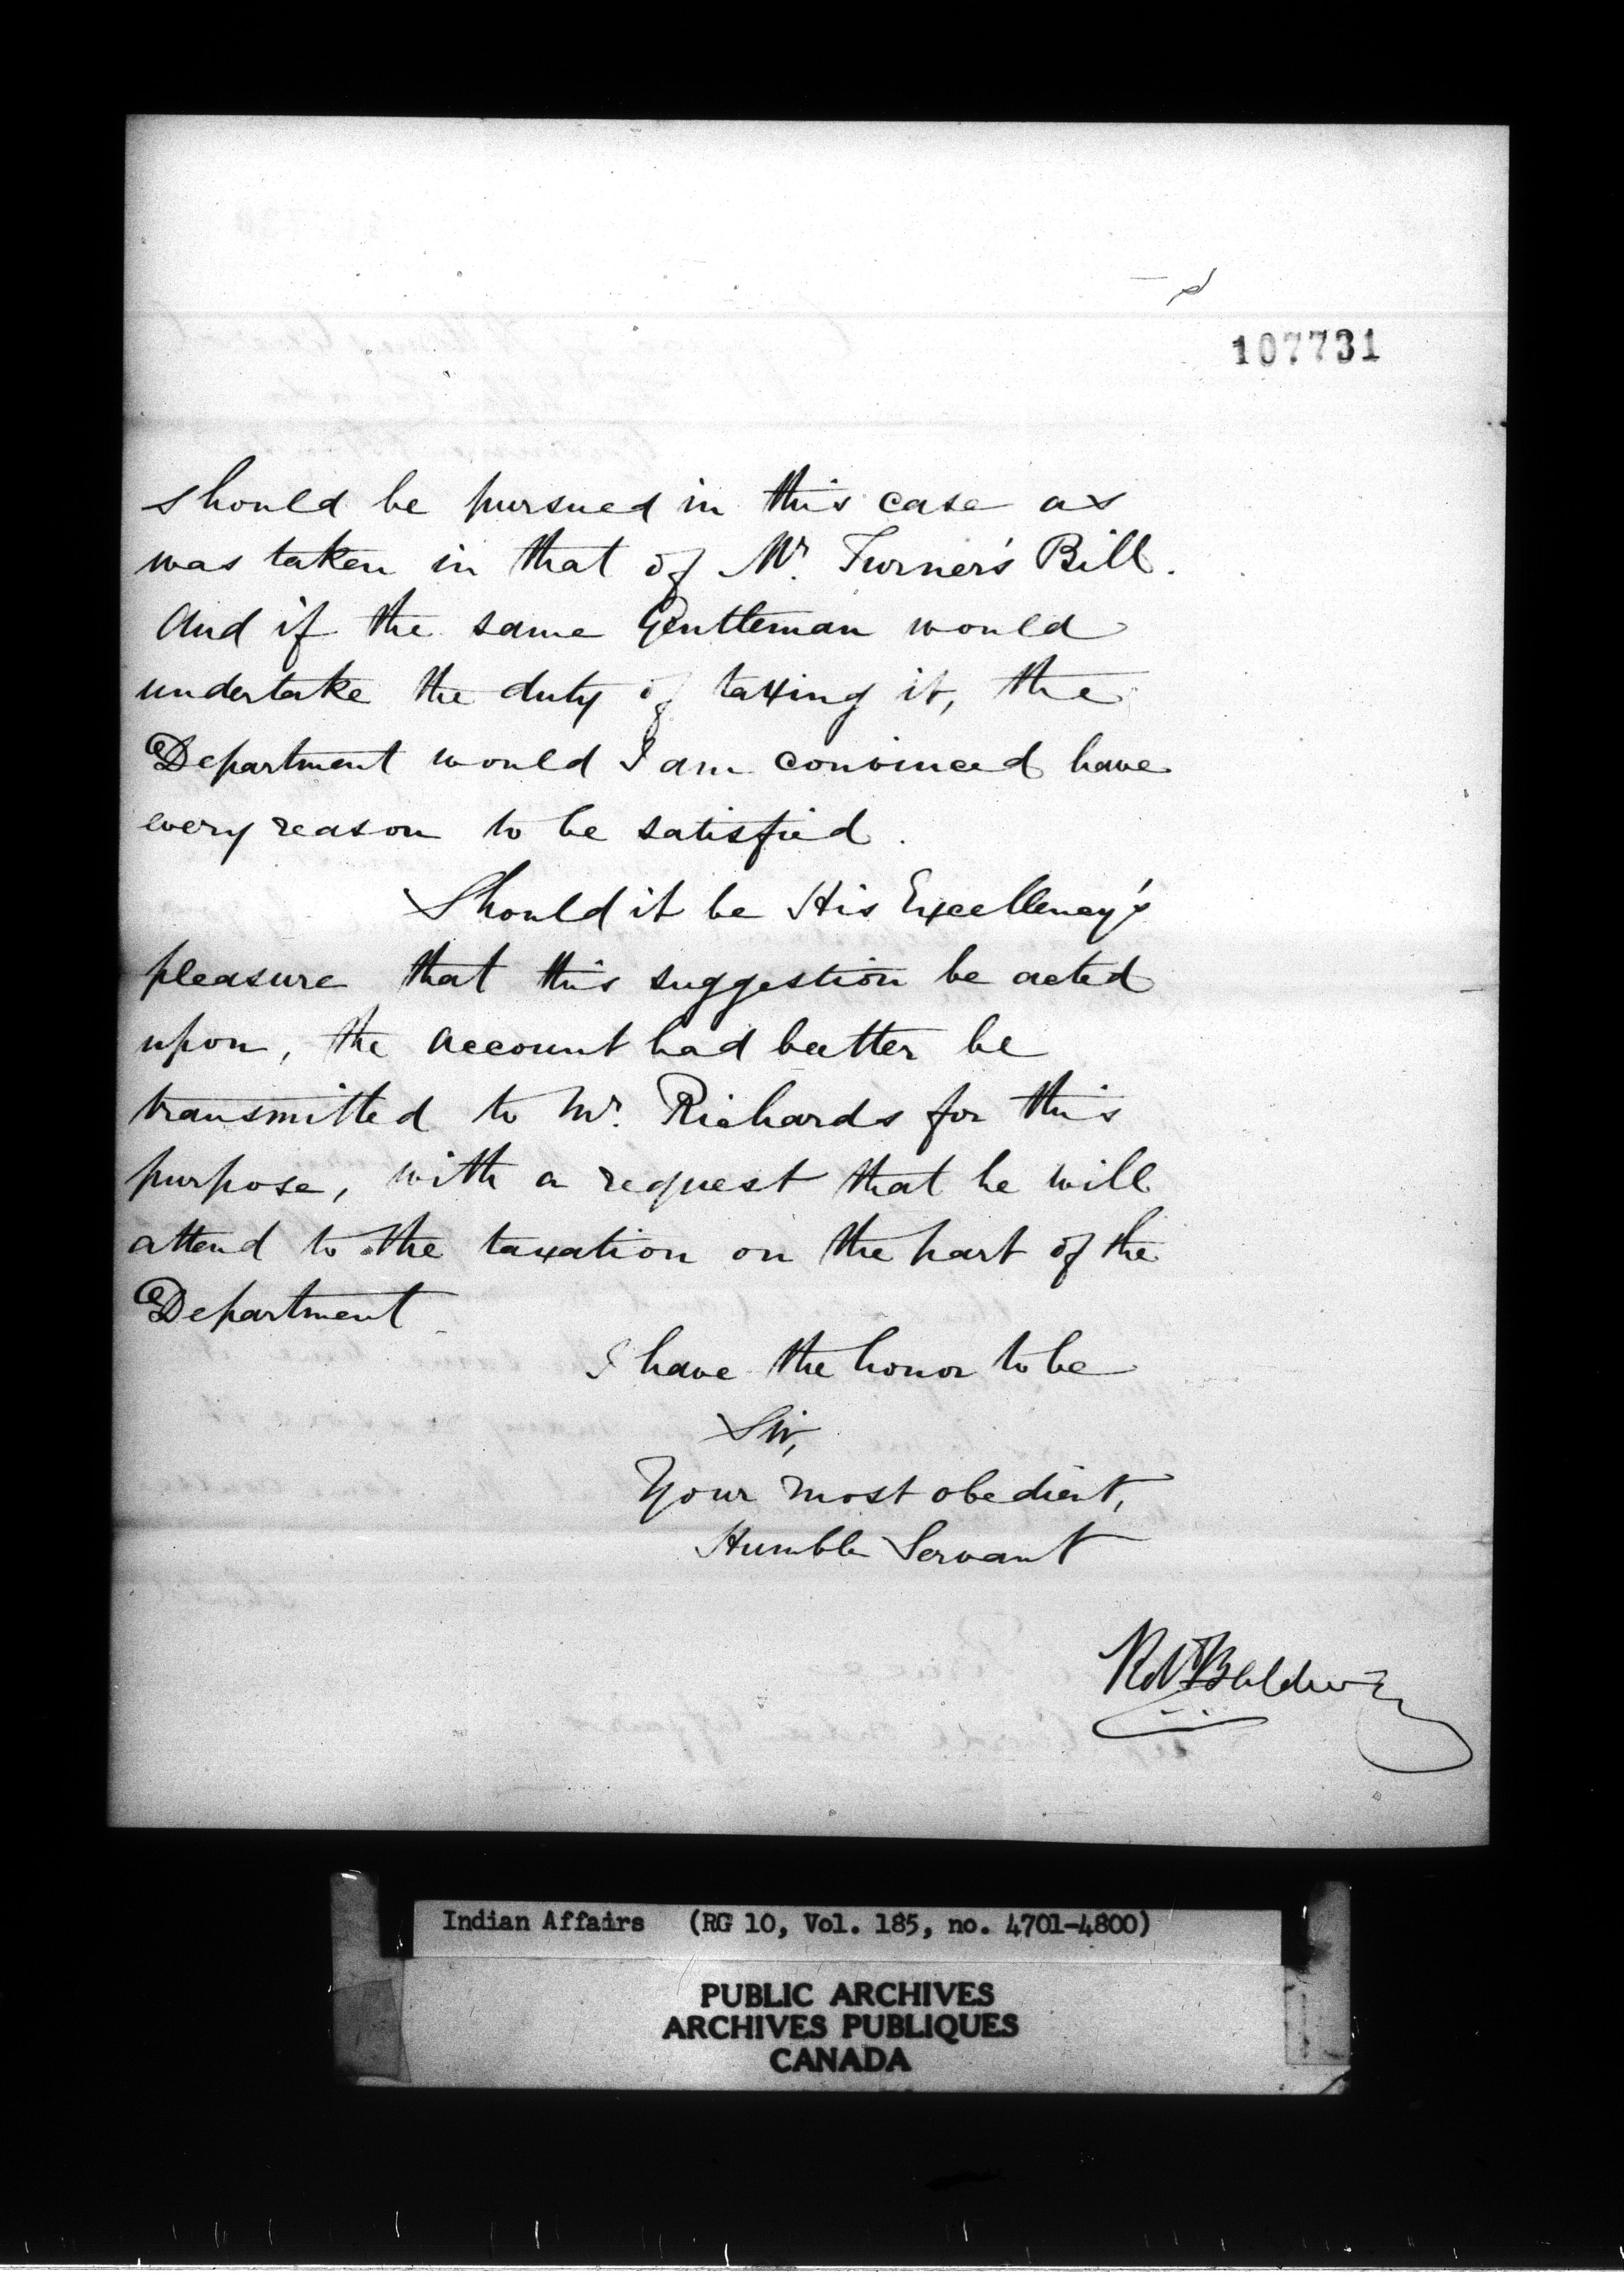 107731
should be pursued in this case as
was taken in that of Mr. Turner's Bill.
And if the same Gentleman would
undertake the duty of taxing it, the
Department would I am convinced have
every reason to be satisfied.
Should it be His Excellency's
pleasure that this suggestion be acted
upon, the account had better be
transmitted to Mr. Richards for this
purpose, with a request that he will
attend to the taxation on the part of the
Department
I have the honor to be
Sir,
Your most obedient,
Humble Servant
Robt Baldwin
Indian Affairs (RG 10, Vol. 185, no. 4701-4800)
PUBLIC ARCHIVES
ARCHIVES PUBLIQUES
CANADA